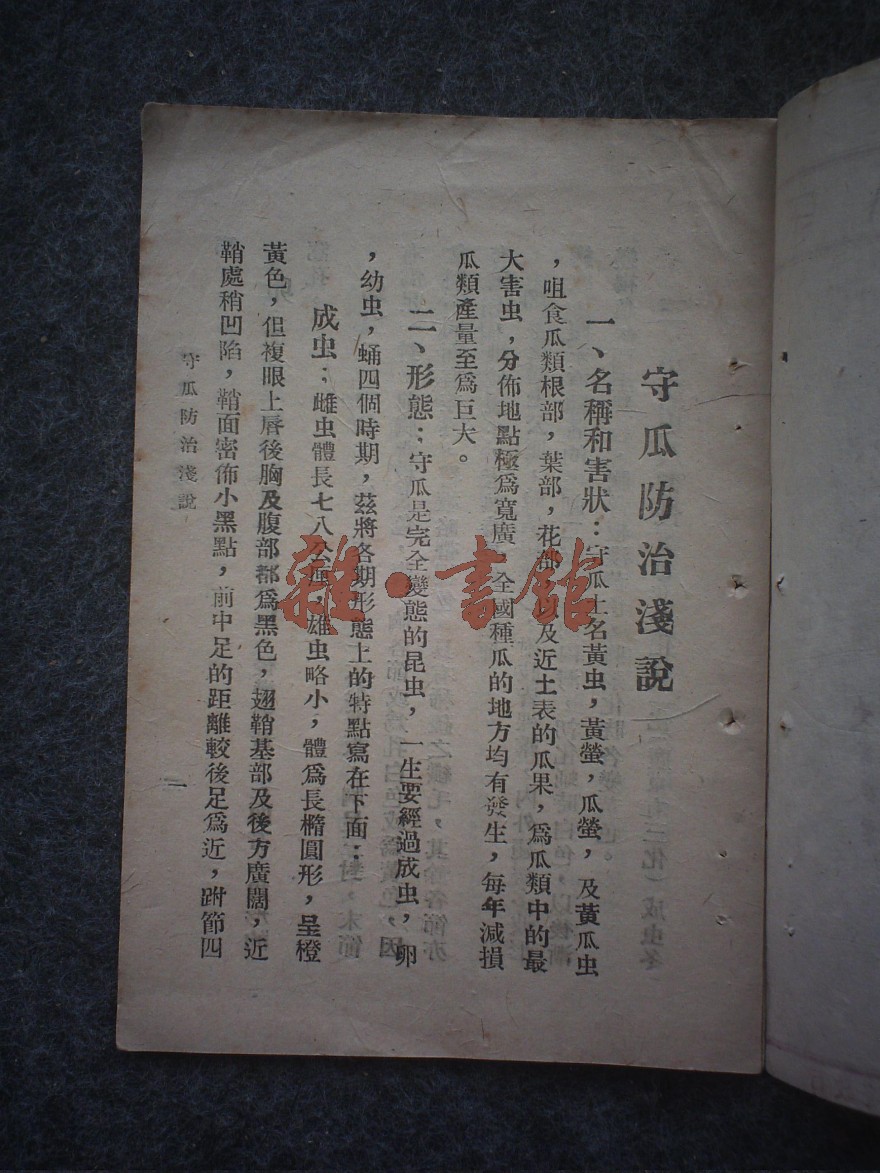 守瓜防治淺說
一、名稱和害狀：守瓜土名黃虫，黃螢，瓜螢，及黃瓜虫
，咀食瓜類根部，葉部，花部，以及近土表的瓜果，爲瓜類中的最
大害虫，分佈地點極爲寬廣，全國種瓜的地方均有發生，每年減損
瓜類產量至爲巨大。
二、形態：守瓜是完全變態的昆虫，一生要經過成虫，卵
，幼虫，蛹四個時期，茲將各期形態上的特點寫在下面：
成虫：雌虫體長七八公厘，雄虫略小，體爲長橢圓形，呈橙
黃色，但複眼上唇後胸及腹部都爲黑色，翅鞘基部及後方廣闊，近
鞘處稍凹陷，鞘面密佈小黑點，前中足的距離較後足爲近，跗節四
守瓜防治淺說
一
雜·書館